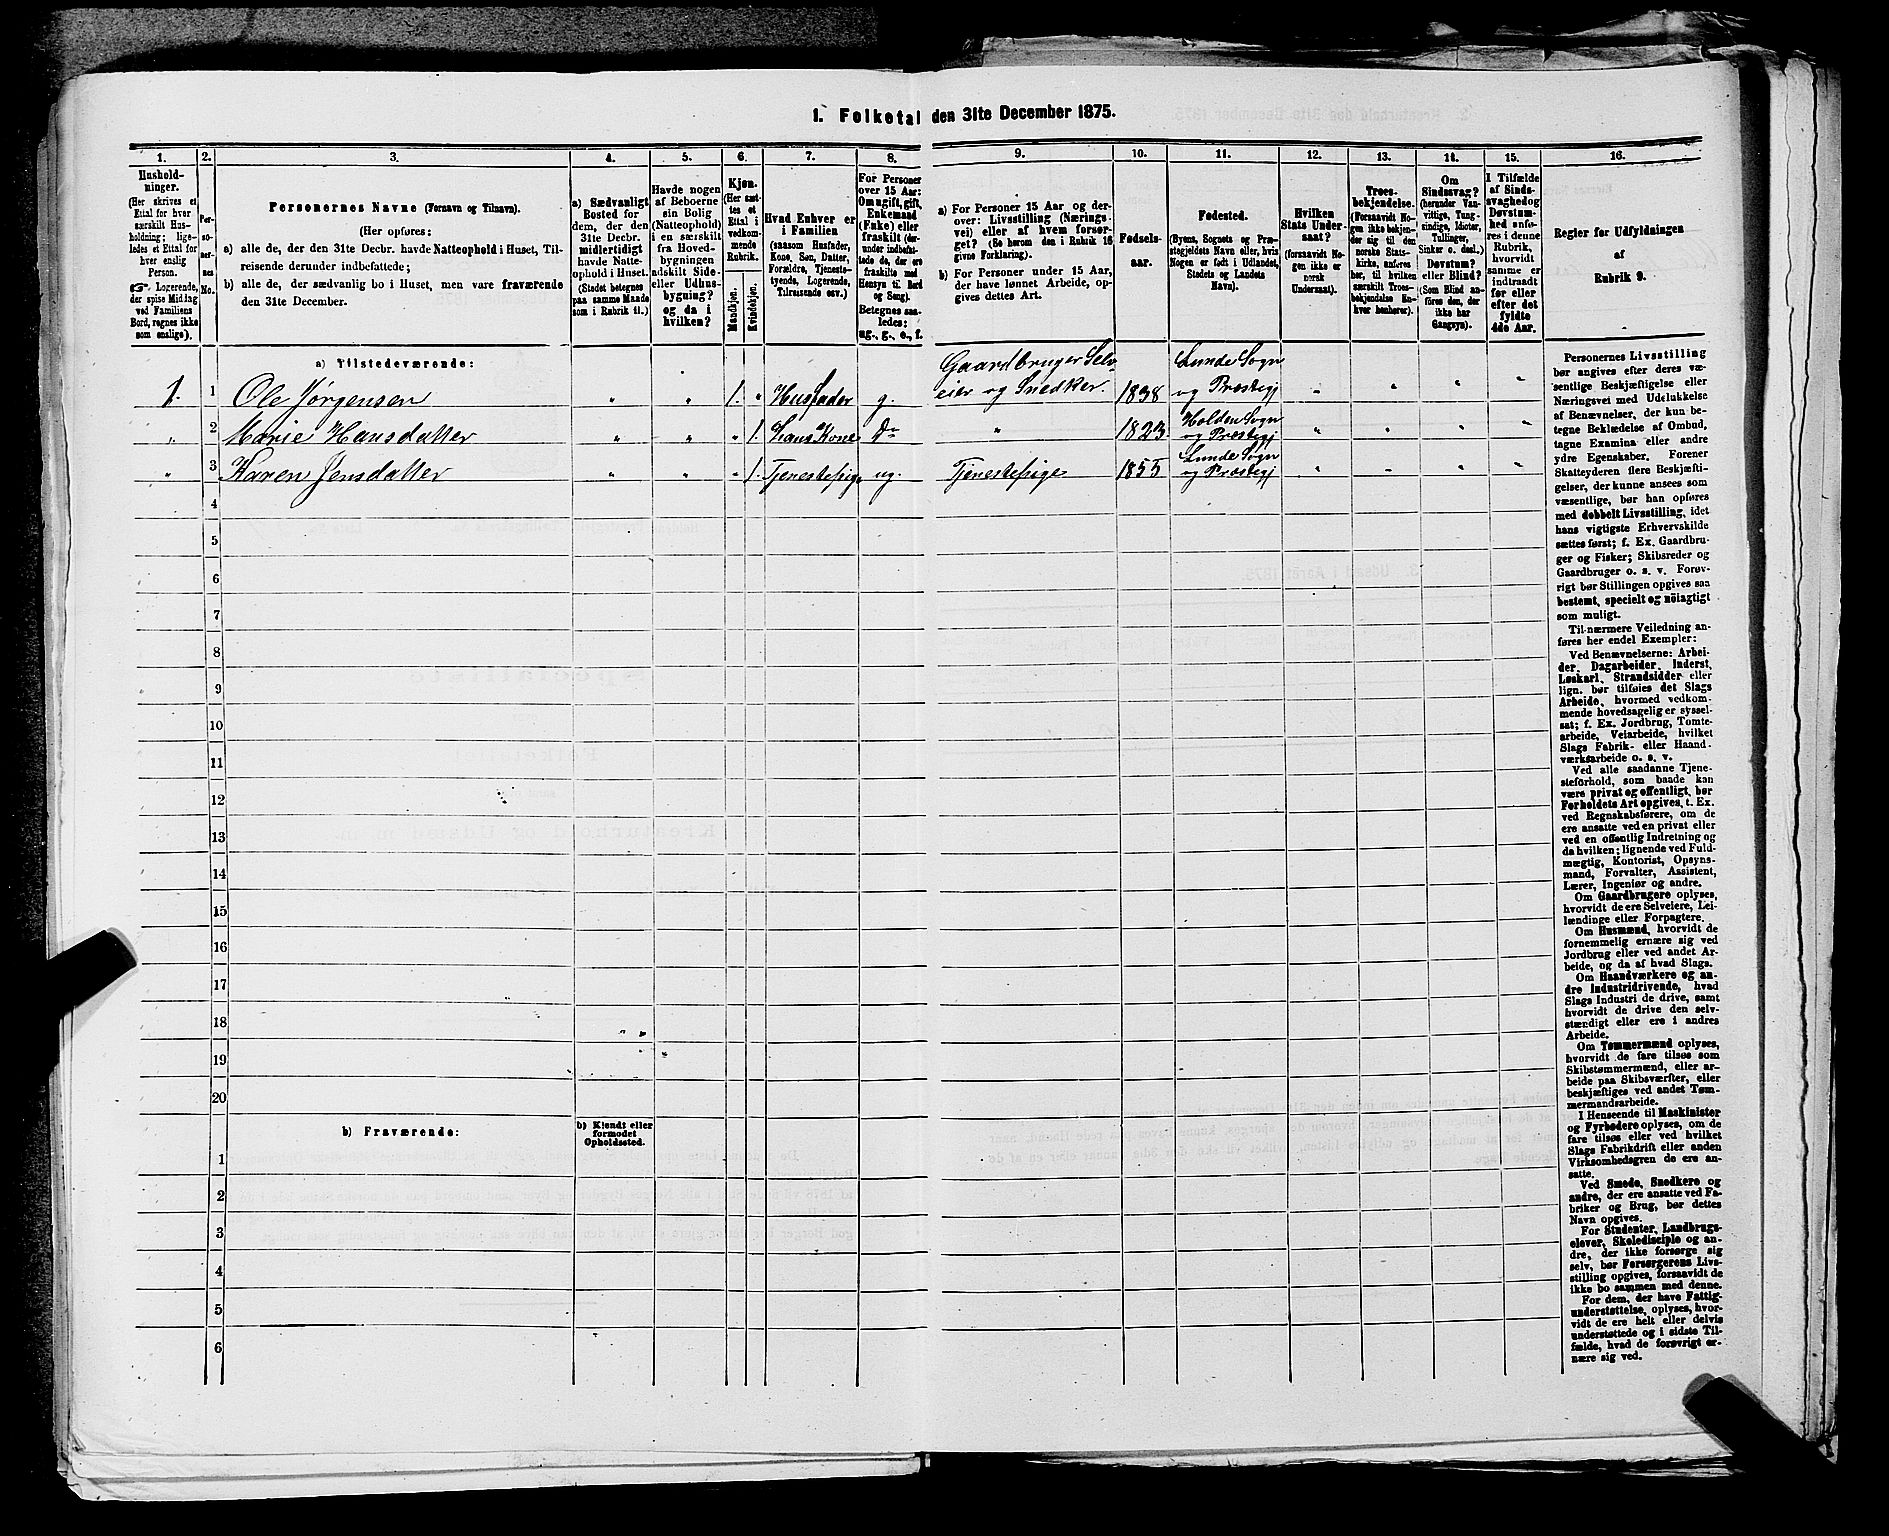 1. Folketal den 31te December 1875.
1. 2. 3. 4. 5. 6. 7. 8. 9. 10. 11. 12. 13. 14. 15. 16.
Hushold-
ninger.
(Her skrives et
Ettal for hver
særskilt Hus-
holdning; lige-
ledes et Ettal for
hver enslig
Person.
Logerende,
der spise Middag
ved Familiens
Bord, regnes ikke
som enslige).
Per-
so-
ner-
nes
No.
Personernes Navne (Fornavn og Tilnavn).
(Her opføres:
a) alle de, der den 31te Decbr. havde Natteophold i Huset, Til-
reisende derunder indbefattede;
b) alle de, der sædvanlig bo i Huset, men vare fraværende
den 31te December.
a) Sædvanligt
Bosted for
dem, der den
31te Decbr.
midlertidigt
havde Natte-
ophold i Huset.
(Stedet betegnes
paa samme Maade
som i Rubrik 11.)
Havde nogen
af Beboerne
sin Bolig
(Natteophold)
i en særskilt
fra Hoved-
bygningen
adskilt Side-
eller Udhus-
bygning?
og da i
hvilken?
Kjøn.
(Her sæt-
tes et
Ettal i
vedkom-
mende
Rubrik.
Mandkjøn.
Kvindekjøn.
Hvad Enhver er
i Familien
(saasom Husfader,
Kone, Søn, Datter,
Forældre, Tjeneste-
tyende, Logerende,
Tilreisende osv.)
For Personer
over 15 Aar:
Om ugift, gift,
Enkemand
(Enke) eller
fraskilt (der-
under indbefat-
tede de, der ere
fraskilte med
Hensyn til Bord
og Seng).
Betegnes saa-
ledes:
ug., g., e., f.
a) For Personer 15 Aar og der-
over: Livsstilling (Nærings-
vei) eller af hvem forsør-
get? (Se herom den i Rubrik 16
givne Forklaring).
b) For Personer under 15 Aar,
der have lønnet Arbeide, op-
gives dettes Art.
Fødsels-
aar.
Fødested.
(Byens, Sognets og Præ-
stegjeldets Navn eller, hvis
Nogen er født i Udlandet,
Stedets og Landets
Navn).
Hvilken
Stats Under-
saat?
(forsaavidt No-
gen ikke er
norsk
Undersaat).
Troes-
bekjendelse.
(Forsaavidt No-
gen ikke bekjen-
der sig til den
norske Stats-
kirke, anføres
her, til hvilken
særskilt Troes-
bekjendelse En-
hver henhører).
Om
Sindssvag?
(herunder Van-
vittige, Tung-
sindige, Idioter,
Tullinger,
Sinker o. desl.)
Døvstum?
eller Blind?
(Som Blind an-
føres den, der
ikke har
Gangsyn).
I Tilfælde
af Sinds-
svaghed og
Døvstum-
hed anfø-
res i denne
Rubrik,
hvorvidt
samme er
indtraadt
før eller
efter det
fyldte
4de Aar.
Regler for Udfyldningen
af
Rubrik 9.
a) Tilstedeværende:
1. 1 Ole Jørgensen " " 1. " Husfader g. Gaardbruger Selv-
eier og Snedker. 1838 Lunde Sogn
og Præstegj " " " "
" 2 Marie Hansdatter " " " 1. hans Kone Do " 1823 Holden Sogn
og Præstegj " " " "
" 3 Karen Jensdatter " " " 1. Tjenestepige ug. Tjenestepige 1855 Lunde Sogn
og Præstegj " " " "
4
5
6
7
8
9
10
11
12
13
14
15
16
17
18
19
20
b) Fraværende:
b) Kjendt eller
formodet
Opholdssted.
1
2
3
4
5
6
Personernes Livsstilling
bør angives efter deres væ-
sentlige Beskjæftigelse eller
Næringsvei med Udelukkelse
af Benævnelser, der kun be-
tegne Beklædelse af Ombud,
tagne Examina eller andre
ydre Egenskaber. Forener
Skatteyderen flere Beskjæfti-
gelser, der kunne ansees som
væsentlige, bør han opføres
med dobbelt Livsstilling, idet
hans vigtigste Erhvervskilde
sættes først; f. Ex. Gaardbru-
ger og Fisker; Skibsreder og
Gaardbruger o. s. v. Forøv-
rigt bør Stillingen opgives saa
bestemt, specielt og nöiagtigt
som muligt.
Til nærmere Veiledning an-
føres her endel Exempler:
Ved Benævnelserne: Arbei-
der, Dagarbeider, Inderst,
Løskarl, Strandsidder eller
lign. bør tilføies det Slags
Arbeide, hvormed vedkom-
mende hovedsagelig er syssel-
sat; f. Ex. Jordbrug, Tomte-
arbeide, Veiarbeide, hvilket
Slags Fabrik- eller Haand-
værksarbeide o. s. v.
Ved alle saadanne Tjene-
steforhold, som baade kan
være privat og offentligt, bør
Forholdets Art opgives, t. Ex.
ved Regnskabsførere, om de
ere ansatte ved en privat eller
ved en offentlig Indretning og
da hvilken; lignende ved Fuld-
mægtig, Kontorist, Opsyns-
mand, Forvalter, Assistent,
Lærer, Ingeniør og andre.
Om Gaardbrugere oplyses,
hvorvidt de ere Selveiere, Lei-
lændinge eller Forpagtere.
Om Husmænd, hvorvidt de
fornemmelig ernære sig ved
Jordbrug eller ved andet Ar-
beide, og da af hvad Slags.
Om Haandværkere og an-
dre Industridrivende, hvad
Slags Industri de drive, samt
hvorvidt de drive den selv-
stændigt eller ere i andres
Arbeide.
Om Tømmermænd oplyses,
hvorvidt de fare tilsøs som
Skibstømmermænd, eller ar-
beide paa Skibsværfter, eller
beskjæftiges ved andet Tøm-
mermandsarbeide.
I Henseende til Maskinister
og Fyrbødere oplyses, om de
fare tilsøs eller ved hvilket
Slags Fabrikdrift eller anden
Virksomhedsgren de ere an-
satte.
Ved Smede, Snedkere og
andre, der ere ansatte ved Fa-
briker og Brug, bør dettes
Navn opgives.
For Studenter, Landbrugs-
elever, Skoledisciple og an-
dre, der ikke forsørge sig
selv, bør Forsørgerens Livs-
stilling opgives, forsaavidt de
ikke bo sammen med denne.
For dem, der have Fattig-
understøttelse, oplyses, hvor-
vidt de ere helt eller delvis
understøttede og i sidste Til-
fælde, hvad de forøvrigt er-
nære sig ved.